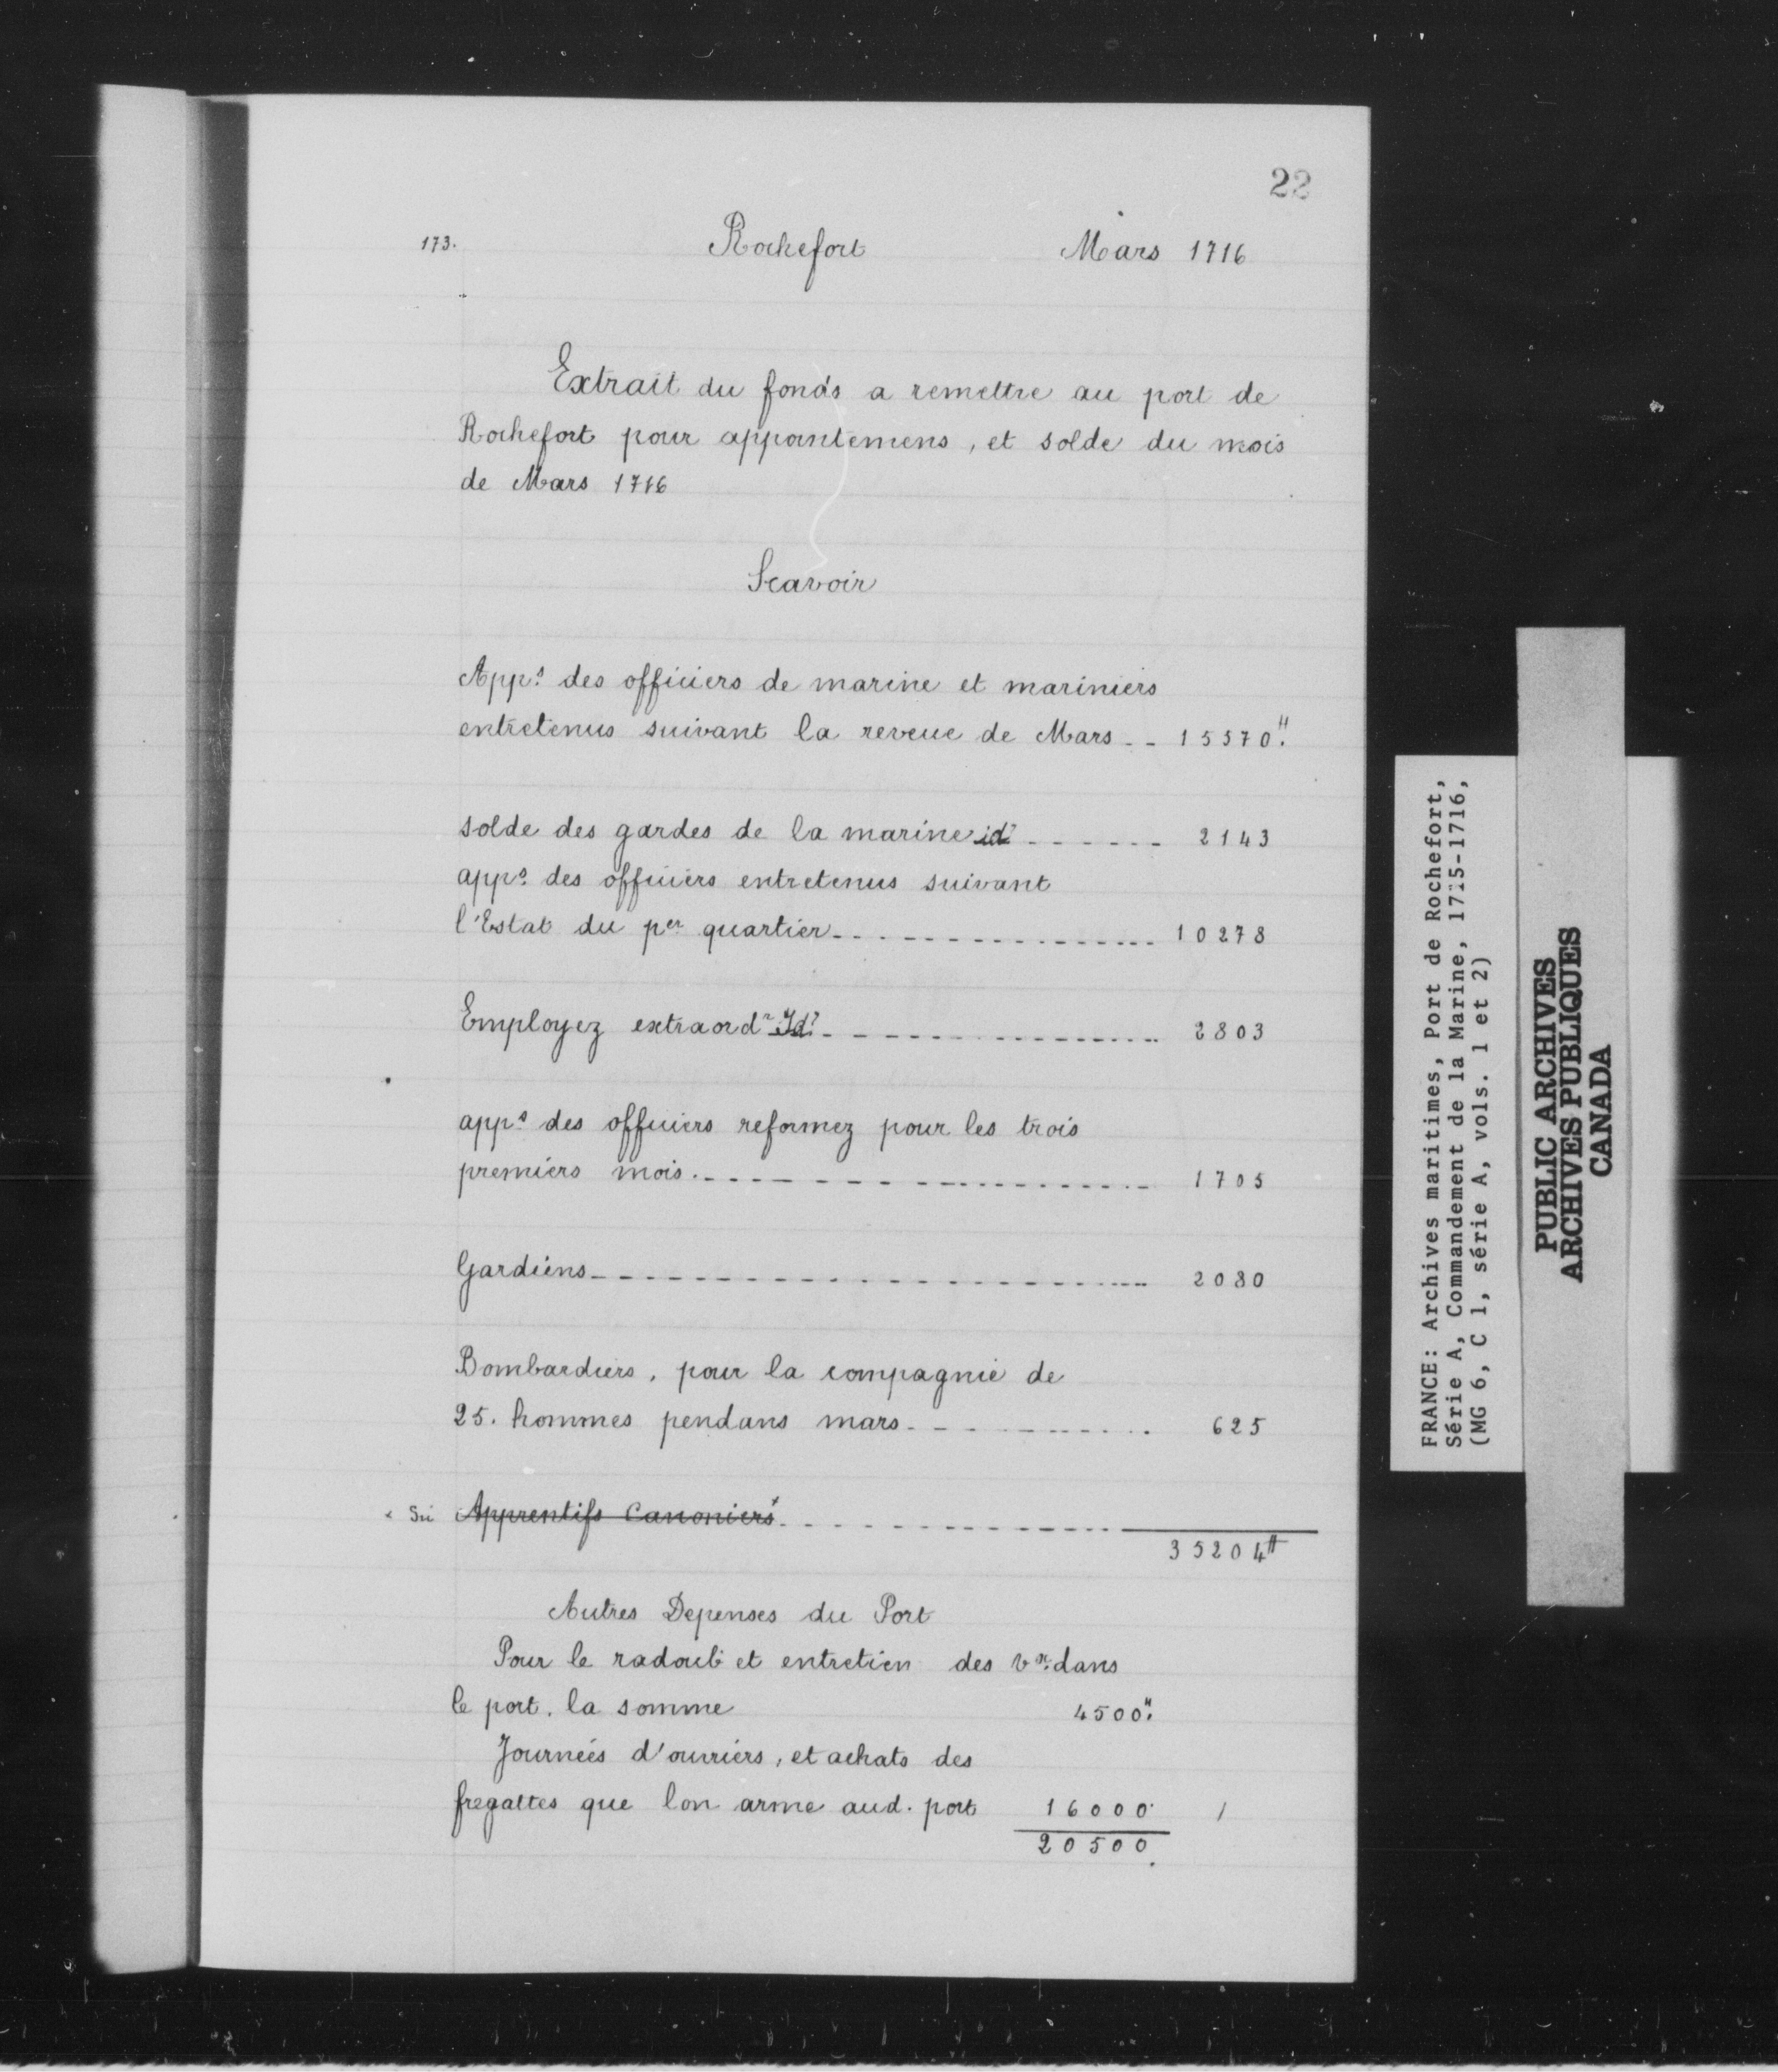 22
173. Rochefort Mars 1716
Extrait du fonds a remettre au port de
Rochefort pour appointemens, et solde du mois
de Mars 1716
Scavoir
App.s des officiers de marine et mariniers
entretenus suivant la reveue de Mars -- 15570."
solde des gardes de la marine id? ------ 2143
app.s des officiers entretenus suivant
l'Estat du per quartier ---------------- 10278
Employez extraord.r Id? ---------------- 2803
app.s des officiers reformez pour les trois
premiers mois. ---------------- 1705
Gardiens ---------------- 2080
Bombardiers, pour la compagnie de
25. hommes pendans mars ---------- 625
x Sic Apprentifs Canoniers x ----------
35204#
Autres Depenses du Port
Pour le radoub et entretien des vx. dans
le port. la somme 4500."
Journées d'ouvriers, et achats des
fregattes que lon arme aud. port 16000. /
20500.
FRANCE: Archives maritimes, Port de Rochefort,
Série A, Commandement de la Marine, 1715-1716,
(MG 6, C 1, série A, vols. 1 et 2)
PUBLIC ARCHIVES
ARCHIVES PUBLIQUES
CANADA